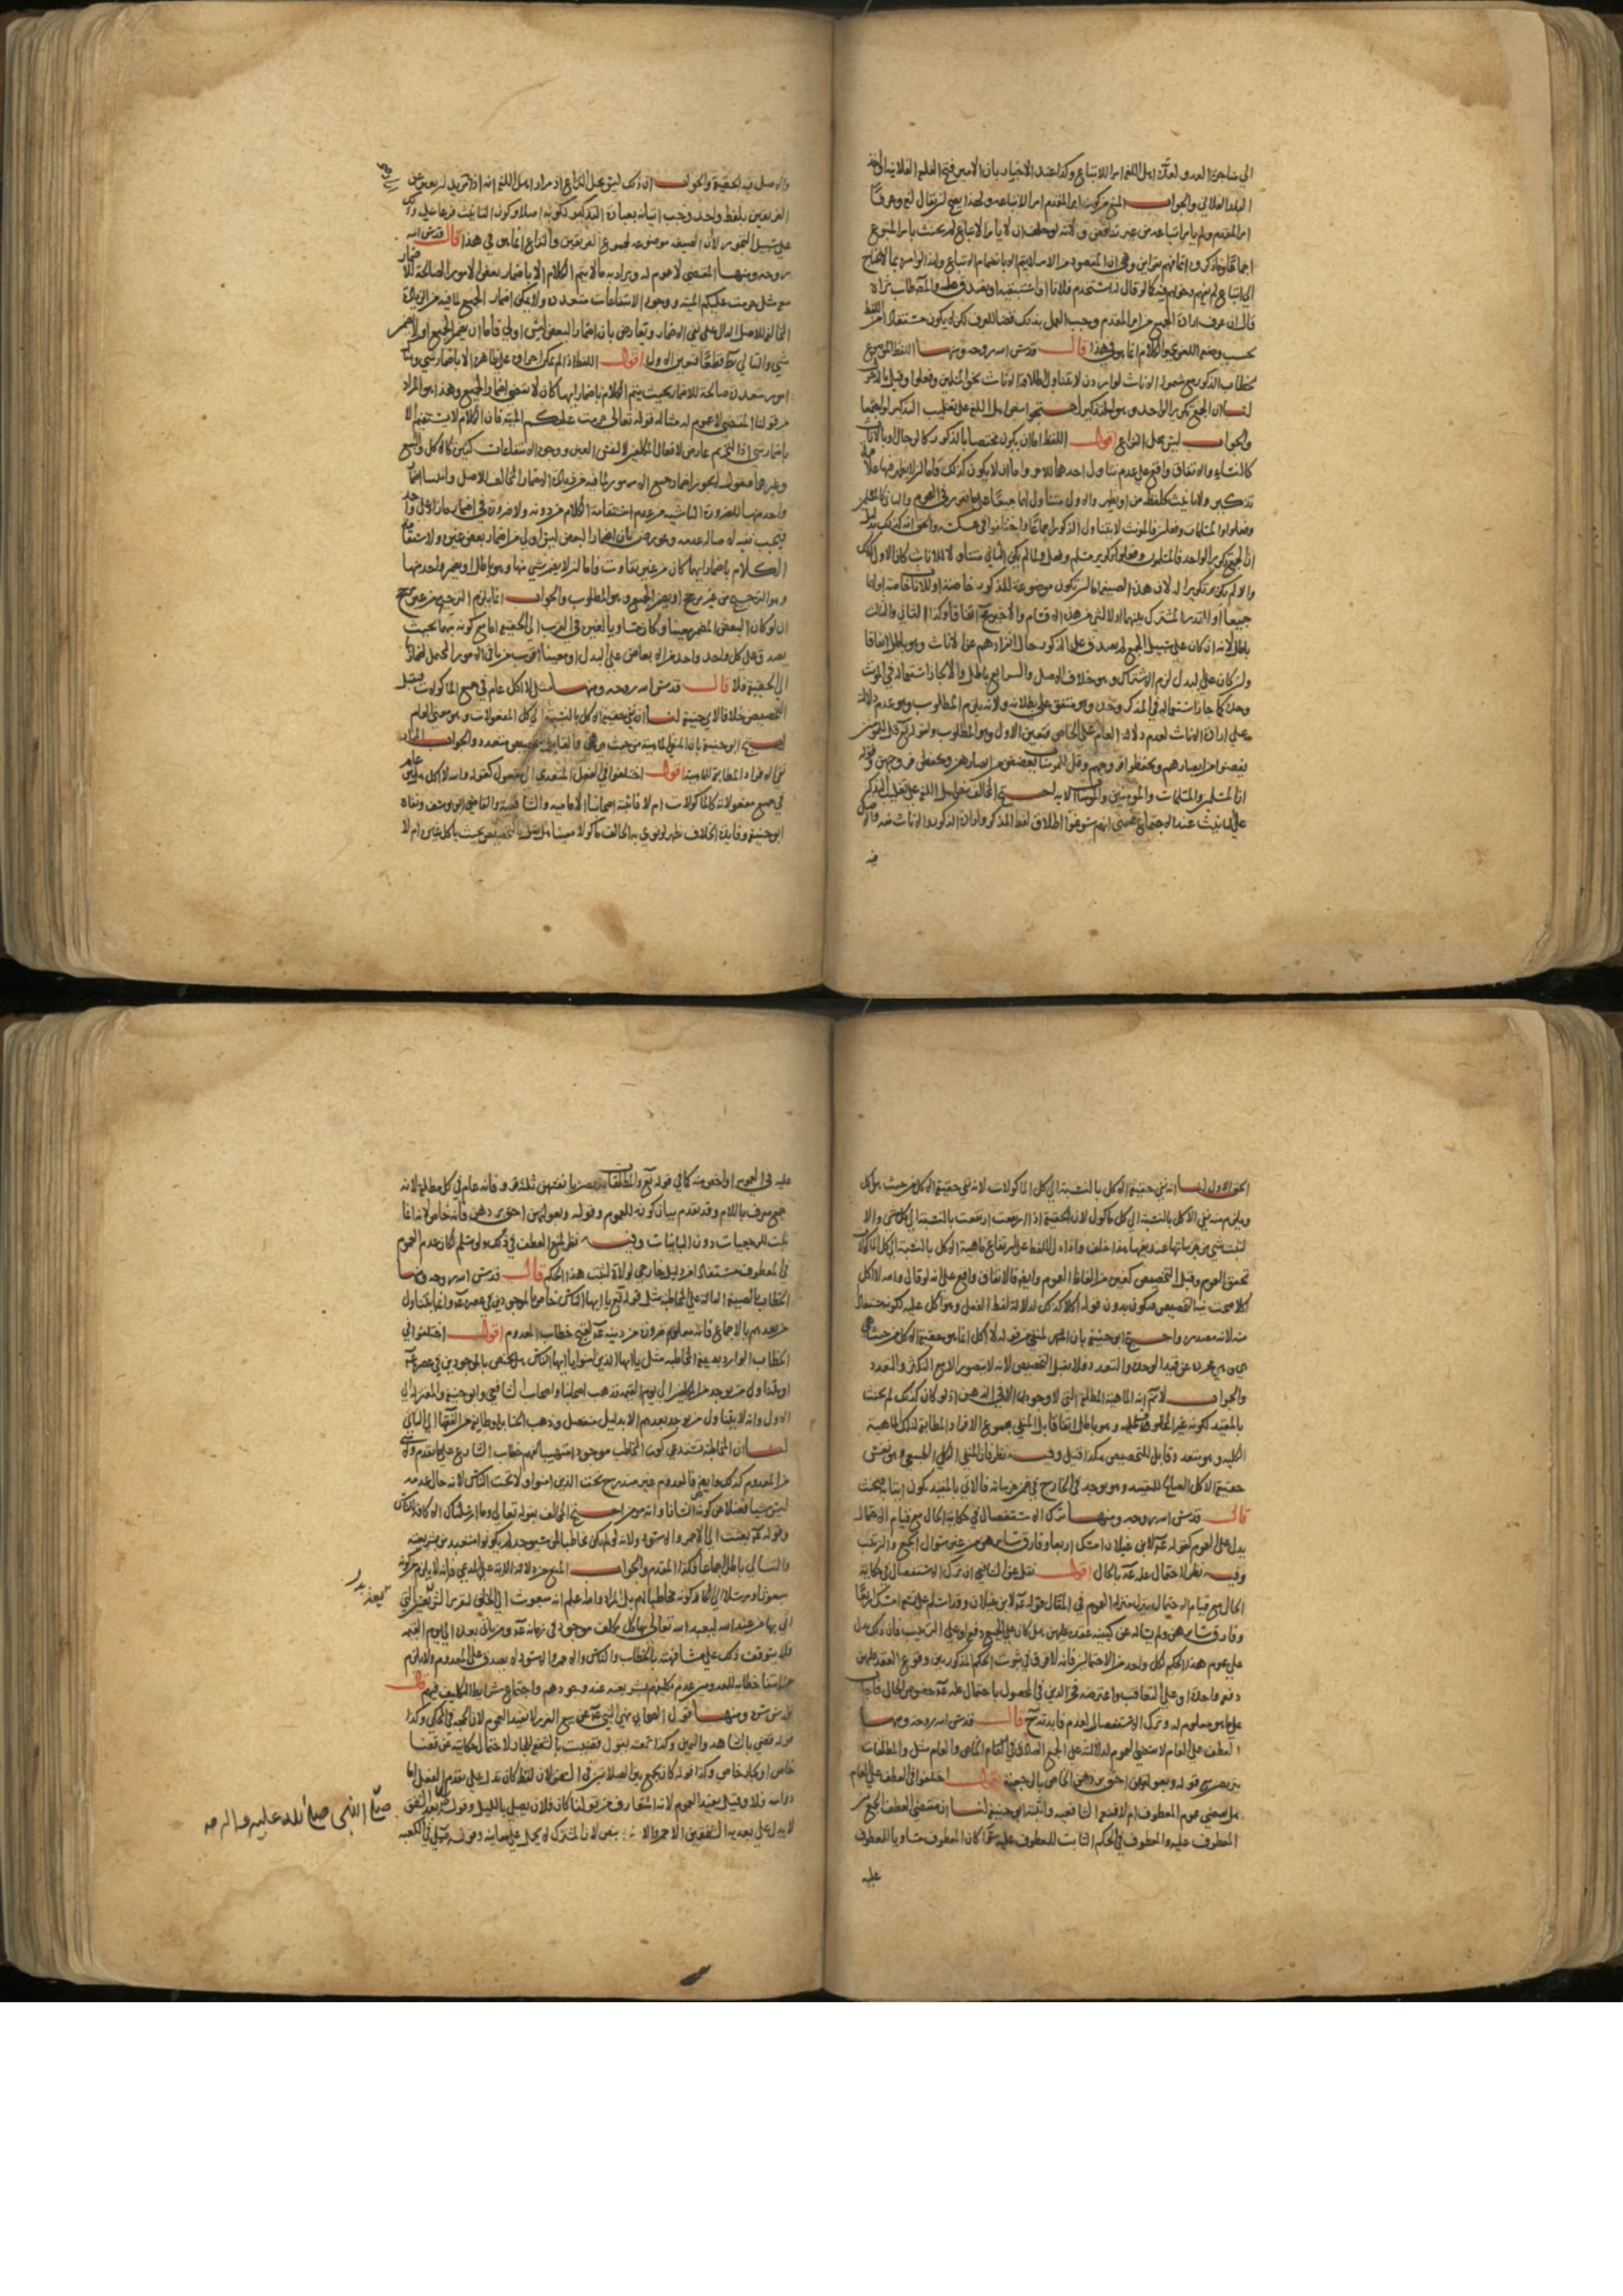 الى مناجزة العدو لعدّه اهل اللغة امرا للاتباع وكذا عند الاخبار بان الامير فتح القلعة الفلانية واخذ
البلد الفلاني والجواب المنع من كون امر المقدم امرا لاتباعه ولهذا يصح ان يقال لغة وعرفا
امر المقدم ولم يامر اتباعه من غير تناقض ولانه لو حلف ان لا يامر الاتباع لم يحنث بامر المتبوع
اجماعا وما ذكروه انما فهم بقراين وهي ان المقصود من الامر لا يتم الا بانضمام الاتباع ولهذا لو امره بما لا يحتاج
الى اتباع لم يفهم دخولهم فيه كما لو قال له استخدم فلانا او استنبقه او تصدق عليه والمصطاب ثراه
قال ان عرف ارادة الجميع من امر المقدم وجب العمل بذلك قضاء للعرف لكن لا يكون مستفادا من اللفظ
بحسب وضعه اللغوي والكلام انما هو في هذا قال قدس الله روحه ومنها اللفظ الموضوع
لخطاب الذكور يصح شموله الاناث لو اريدت لا يتناول اطلاقه الاناث نحو المسلمين وفعلوا وقيل بالدخول
لنا ان الجمع تكرير الواحد وهو للتذكير احتجوا بنص اهل اللغة على تغليب التذكير لو اجتمعا
والجواب ليس محل النزاع اقول اللفظ اما ان يكون مختصا بالذكور كالرجال او بالاناث
كالنساء والاتفاق واقع على عدم تناول احدهما للاخر واما ان لا يكون كذلك فاما ان لا يظهر فيه علامة
تذكير ولا تانيث كلفظ من او يظهر والاول متناول لهما جميعا على ما تقرر في العموم والثاني كالمسلمين
وفعلوا والمسلمات وفعلن فالمؤنث لا يتناول الذكور اجماعا واختلفوا في عكسه والحق انه كذلك لنا
ان الجمع تكرير الواحد فالمسلمون وفعلوا تكرير مسلم وفعل ولما لم يكن الثاني متناولا للاناث كان الاول كذلك
والا لم يكن تكريرا له لان هذه الصيغة اما ان تكون موضوعة للذكور خاصة او للاناث خاصة او لهما
جميعا او للقدر المشترك بينهما او لا لشيء من هذه الاقسام والاخير منتف اتفاقا وكذا الثاني والثالث
باطل لانه ان كان على سبيل الجمع لم يصدق على الذكور حال انفرادهم عن الاناث وهو باطل اتفاقا
وان كان على البدل لزم الاشتراك وهو خلاف الاصل والرابع باطل والا لجاز استعماله في المؤنث
وحده كما جاز استعماله في المذكر وحده وهو متفق على بطلانه ولانه يلزم المطلوب وهو عدم دلالته
على ارادة الاناث لعدم دلالة العام على الخاص فتعين الاول وهو المطلوب ولقوله تعالى قل للمؤمنين
يغضوا من ابصارهم ويحفظوا فروجهم وقل للمؤمنات يغضضن من ابصارهن ويحفظن فروجهن وقوله
ان المسلمين والمسلمات والمؤمنين والمؤمنات الاية احتج المخالف بنص اهل اللغة على تغليب التذكير
على التانيث عند الاجتماع بمعنى انهم سوغوا اطلاق لفظ المذكر وارادة الذكور والاناث منه والاصل
فيه
والاصل فيه الحقيقة والجواب ان ذلك ليس محل النزاع اذ مراد اهل اللغة انه اذا اريد ان يعبر عن
الفريقين بلفظ واحد وجب اتيانه بعبارة التذكير لكونه اصلا وكون التانيث فرعا عليه وذلك
على سبيل التجوز لا ان الصيغة موضوعة لمجموع الفريقين والنزاع انما هو في هذا قال قدس الله
روحه ومنها المقتضي لا عموم له ويراد به ما لا يتم الكلام الا باضمار بعض الامور الصالحة للاضمار
معه مثل حرمت عليكم الميتة ووجوه الاستفاعات متعددة ولا يمكن اضمار الجميع لما فيه من الزيادة
المخالفة للاصل الدال على نفي الاضمار ويعارض بان اضمار البعض ليس اولى فاما ان يعم الجميع او لا يضمر
شيء والثاني بط قطعا فتعين الاول اقول اللفظ اذا لم يمكن اجراؤه على ظاهره الا باضمار شيء وهناك
امور متعددة صالحة للاضمار بحيث يتم الكلام باضمار ايها كان لا يقتضي اضمار الجميع وهذا هو المراد
من قولنا المقتضي لا عموم له مثاله قوله تعالى حرمت عليكم الميتة فان الكلام لا يستقيم الا
باضمار شيء اذ التحريم عارض لافعال المكلفين لا لنفس العين ووجوه الانتفاعات كثيرة كالاكل والبيع
وغيرهما فنقول لا يجوز اضمار جميع الامور لما فيه من زيادة الاضمار المخالف للاصل وانما اضمرنا
واحد منها للضرورة الناشية من عدم استقامة الكلام من دونه ولا ضرورة في اضمار ما زاد على واحد
فيجب نفيه لاصالة عدمه وعورض بان اضمار البعض ليس اولى من اضمار بعض غيره ولاستقامة
الكلام باضمار ايها كان من غير تفاوت فاما ان لا يضمر شيء منها وهو باطل او يضمر واحد منها
وهو الترجيح من غير مرجح او يضمر الجميع وهو المطلوب والجواب انما يلزم الترجيح من غير مرجح
ان لو كان البعض المضمر معينا وكان مساويا لغيره في القرب الى الحقيقة اما مع كونه مبهما بحيث
يصدق على كل واحد واحد من الابعاض على البدل او معينا اقرب من باقي الامور المحتمل اضمارها
الى الحقيقة فلا قال قدس الله روحه ومنها مثل لا اكل عام في جميع الماكولات فيقبل
التخصيص خلافا لابي حنيفة لنا انه نفي حقيقة الاكل بالنسبة الى كل المفعولات وهو معنى العام
احتج ابو حنيفة بان المنفي الماهية من حيث هي هي والقابل للتخصيص متعدد والجواب المراد
نفي الافراد المطابقة للماهية اقول اختلفوا في الفعل المتعدي الى مفعول كقوله والله لا اكل هل هو عام
في جميع مفعولاته كالماكولات ام لا فاثبته اصحابنا الامامية والشافعية والقاضي ابو يوسف ونفاه
ابو حنيفة وفايدة الخلاف تظهر لو نوى به الحالف ماكولا معينا هل يقبل التخصيص بحيث ياكل غيره ام لا
الحق الاول لنا انه نفي حقيقة الاكل بالنسبة الى كل الماكولات لانه نفي حقيقة الاكل من حيث هو اكل
ويلزم منه نفي الاكل بالنسبة الى كل ماكول لان الحقيقة اذا ارتفعت ارتفعت بالنسبة الى كل شيء والا
لثبت شيء من جزئياتها عند نفيها هذا خلف واذا دل اللفظ على ارتفاع ماهية الاكل بالنسبة الى كل الماكولات
تحقق العموم وقبل التخصيص كغيره من الفاظ العموم وايضا فالاتفاق واقع على انه لو قال والله لا اكل
اكلا صحت نية التخصيص فيكون بدون قوله اكلا كذلك لدلالة لفظ الفعل وهو اكل عليه لكونه مشتقا
منه لانه مصدره واحتج ابو حنيفة بان المنفي من قوله لا اكل انما هو حقيقة الاكل من حيث هي
هي وهي مجردة عن قيد الوحدة والتعدد فلا يقبل التخصيص لانه لا يتصور الا مع التكثر والتعدد
والجواب لا نم انه الماهية المطلقة التي لا وجود لها الا في الذهن اذ لو كان كذلك لم يحنث
بالمقيد لكونه غير المحلوف عليه وهو باطل اتفاقا بل المنفي مجموع الافراد المطابقة لتلك الماهية
الكلية وهو متعدد قابل للتخصيص هكذا قيل وفيه نظر فان المنفي الكلي الطبيعي وهو نفس
حقيقة الاكل الصالح للتقييد وهو يوجد في الخارج في ضمن جزئياته فالاتي بالمقيد يكون اتيا به فيحنث
قال قدس الله روحه ومنها ترك الاستفصال في حكاية الحال مع قيام الاحتمال
يدل على العموم كقوله عم لابن غيلان امسك اربعا وفارق سايرهن من غير سؤال الجمع والترتيب
وفيه نظر لاحتمال علمه عم بالحال اقول نقل عن الشافعي ان ترك الاستفصال في حكاية
الحال مع قيام الاحتمال ينزل منزلة العموم في المقال كقوله عم لابن غيلان وقد اسلم على عشر امسك اربعا
وفارق سايرهن ولم يساله عن كيفية عقده عليهن هل كان على الجمع دفعة او على الترتيب فان ذلك يدل
على عموم هذا الحكم لكل واحد من الاحتمالين فانه لا فرق في ثبوت الحكم المذكور بين وقوع العقد عليهن
دفعة واحدة او على التعاقب واعترضه فخر الدين في المحصول باحتمال علمه عم خصوص الحال فاجاب
على ما هو معلوم له وترك الاستفصال لعدم فايدته ح قال قدس الله روحه ومنها
العطف على العام لا يقتضي العموم لدلالته على الجمع الصادق في الخاص والعام مثل والمطلقات
يتربصن مع قوله وبعولتهن احق بردهن الخاص بالرجعية اقول اختلفوا في العطف على العام
هل يقتضي عموم المعطوف ام لا فنفاه الشافعية واثبته ابو حنيفة لنا ان مقتضى العطف الجمع بين
المعطوف عليه والمعطوف في الحكم الثابت للمعطوف عليه سواء كان المعطوف مساويا للمعطوف
عليه
عليه في العموم او اخص منه كما في قوله تع والمطلقات يتربصن بانفسهن ثلثة قروء فانه عام في كل مطلقة لانه
جمع معرف باللام وقد تقدم بيان كونه للعموم وقوله وبعولتهن احق بردهن فانه خاص لانه انما
يثبت للرجعيات دون الباينات وفيه نظر لمنع العطف في ذلك ولو سلم لكان عدم العموم
في المعطوف مستفادا من دليل خارجي لولاه لثبت هذا الحكم قال قدس الله روحه ومنها
الخطاب بالصيغة الدالة على المخاطبة مثل قوله تع يا ايها الناس خاص بالموجودين في عصره عم وانما يتناول
من بعدهم بالاجماع فانه معلوم ضرورة من دينه عم لقبح خطاب المعدوم اقول اختلفوا في
الخطاب الوارد بصيغة المخاطبة مثل يا ايها الذين امنوا يا ايها الناس هل يختص بالموجودين في عصره عم
او يتناول من يوجد من المكلفين الى يوم القيمة فذهب اصحابنا واصحاب الشافعي وابو حنيفة والمعتزلة الى
الاول وانه لا يتناول من يوجد بعدهم الا بدليل منفصل وذهب الحنابلة وطايفة من الفقها الى الثاني
لنا ان المخاطبة تستدعي كون المخاطب موجودا متهيئا لفهم خطاب الشارع على ما تقدم ولا شيء
من المعدوم كذلك وايضا فالمعدوم غير مندرج تحت الذين امنوا ولا تحت الناس لانه حال عدمه
ليس شيئا فضلا عن كونه انسانا او مؤمنا احتج المخالف بقوله تعالى وما ارسلناك الا كافة للناس
وقوله عم بعثت الى الاحمر والاسود ولانه لو لم يكن مخاطبا لمن سيوجد لم يكونوا متعبدين بشريعته
والتالي باطل اجماعا فكذا المقدم والجواب المنع من دلالة الاية على المدعى فانه لا يلزم من كونه
مبعوثا ومرسلا الى الكافة كونه مخاطبا لهم بل المراد والله اعلم انه مبعوث الى الخلق لتقرير الشريعة التي
اتى بها من عند الله ليعبد الله تعالى بها كل مكلف موجود في زمانه عم ومن ياتي بعده الى يوم القيمة
فلا يتوقف ذلك على مشافهته بالخطاب والناس والاحمر والاسود لا يصدق على المعدوم ولا يلزم
من امتناع خطابه للمعدومين عدم تكليفهم بشريعته عند وجودهم واجتماع شرايط التكليف فيهم قال
قدس سره ومنها قول الصحابي نهى النبي عم عن بيع الغرر لا يفيد العموم لان الحجة في المحكي وكذا
قوله قضى بالشاهد واليمين وكذا سمعته يقول قضيت بالشفعة للجار لاحتمال حكايته عن قضاء
خاص او بجار خاص وكذا قوله كان يجمع بين الصلاتين في السفر لان لفظ كان تدل على تقدم الفعل اما
دوامه فلا وقيل يفيد العموم لانه المتعارف من قولنا كان فلان يصلي بالليل وقوله صلى بعد الشفق
لا يدل على بعدية الشفقين الاحمر والابيض لان المشترك لا يحمل على معانيه وقوله صلى في الكعبة
صلى النبي صلى الله عليه واله